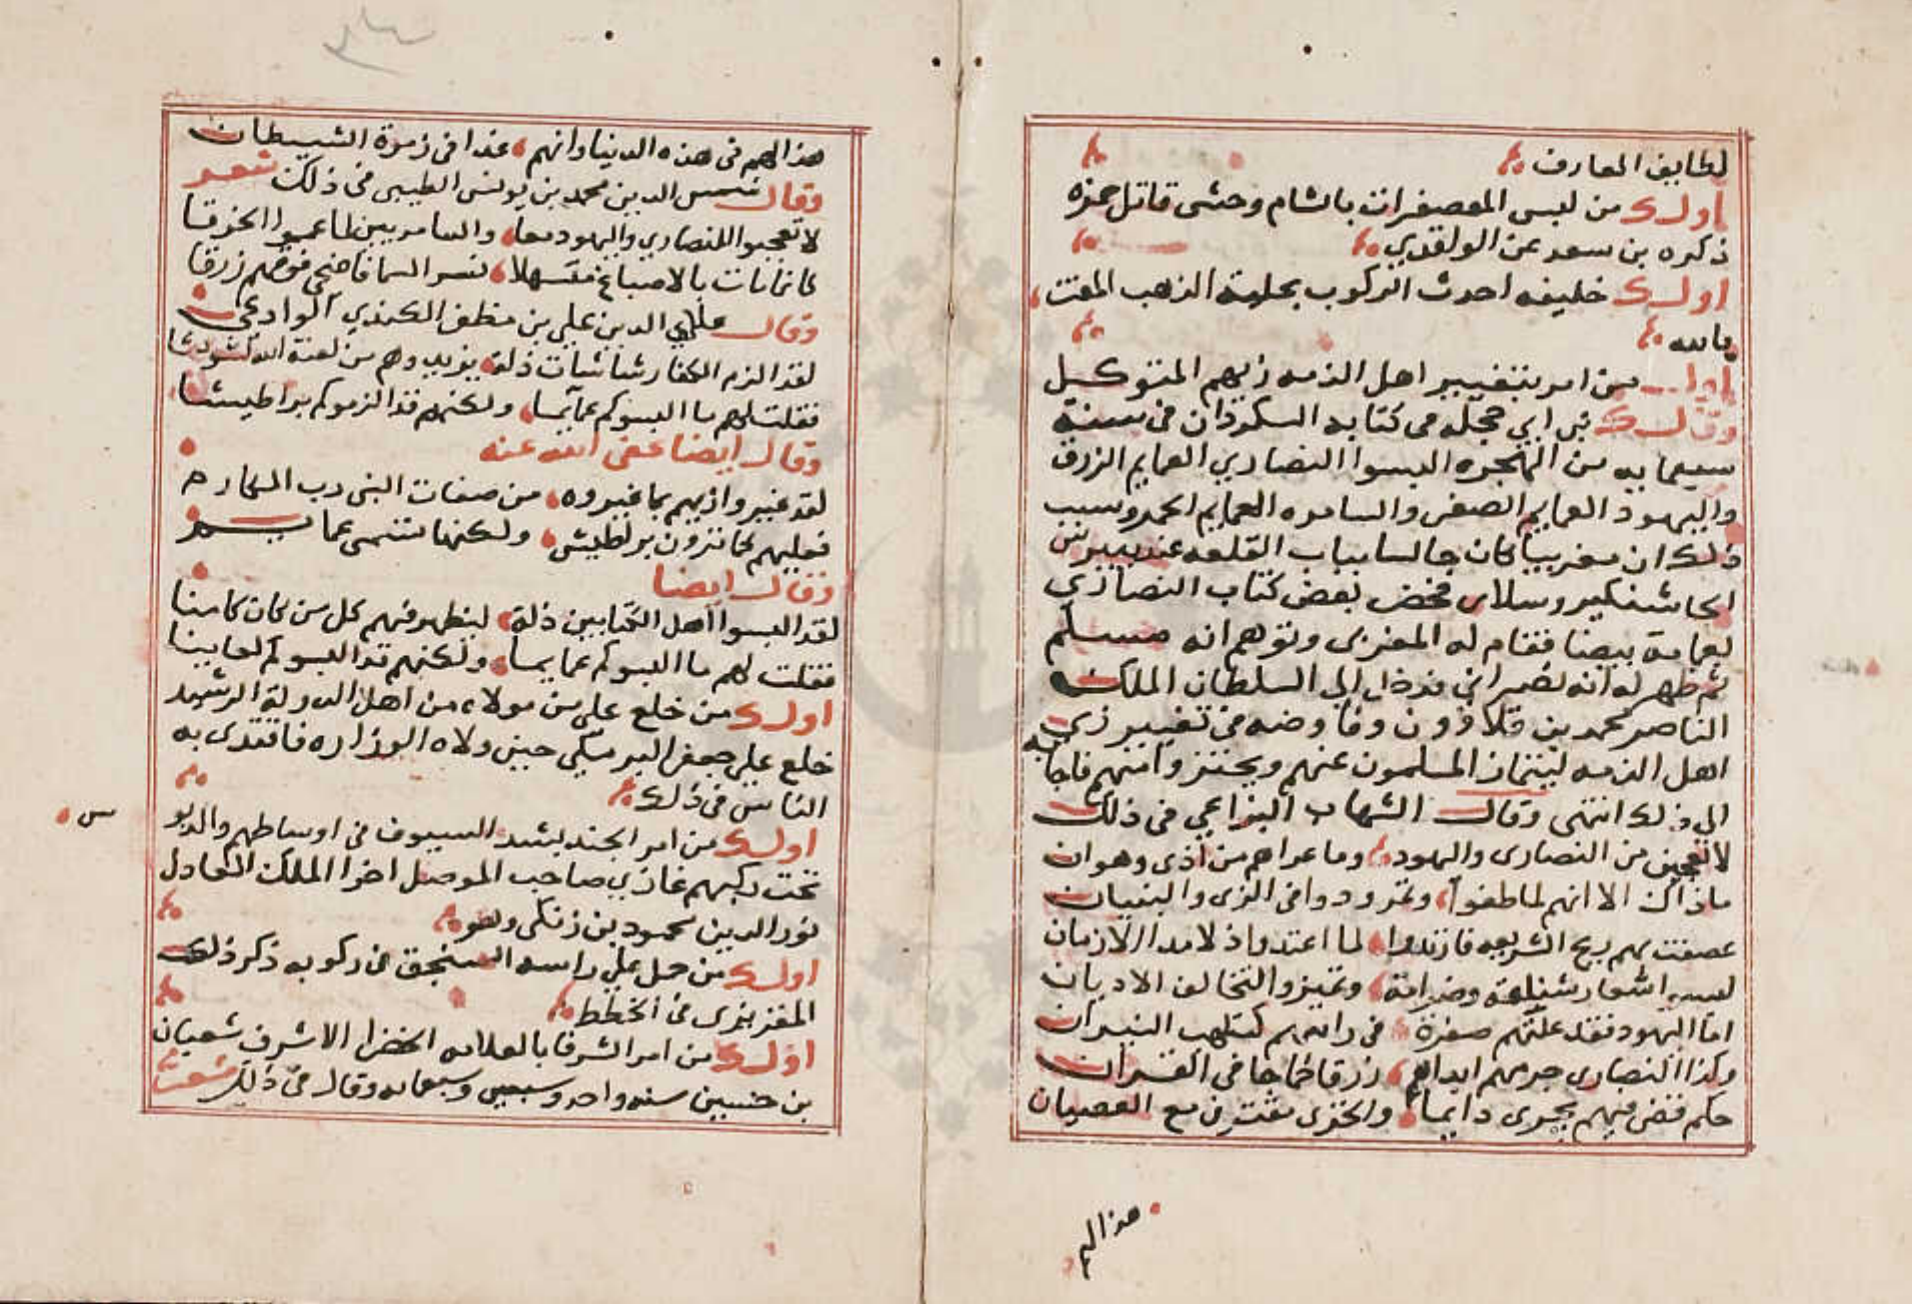 لطايف المعارف
اول من لبس المعصفرات بالشام وحشى قاتل حمزه
ذكره بن سعد عن الواقدي
اول خليفه احدث الركوب بحلية الذهب المعتز
بالله
اول من امر بتغيير اهل الذمه زيهم المتوكل
وقال بن ابي حجله في كتابه السكردان في سنة
سبعمايه من الهجره البسوا النصاري العمايم الزرق
واليهود العمايم الصفر والسامره العمايم الحمر وسبب
ذلك ان مغربيا كان جالسا بباب القلعه عند بيبرس
الجاشنكير وسلار فحضر بعض كتاب النصاري
بعمامة بيضا فقام له المغربى وتوهم انه مسلم
ثم ظهر له انه نصراني فدخل الي السلطان الملك
الناصر محمد بن قلاوون وفاوضه في تغيير زي
اهل الذمه ليتماز المسلمون عنهم ويحترزوا منهم فاجابه
الي ذلك انتهى وقال الشهاب في ذلك
لا تعجبن من النصارى واليهود وما عراهم من اذى وهوان
ماذاك الا انهم لما طغوا وتمردوا في الزى والبنيان
عصفت بهم ريح الشريعه فارتدوا لما اعتدوا
وتميزوا لتخالف الاديان
اما اليهود فقد علتهم صفرة في راسهم كتلهب النيران
وكذا النصارى جرمهم ابداهم زرقا كما جا في القران
حكم قضى فيهم يجرى دايما والخزى مقترن مع العصيان
هذا لهم
هذا لهم في هذه الدنيا وانهم غدا في زمرة الشيطان
وقال شمس الدين محمد بن يونس الطيبى في ذلك شعر
لا تعجبوا للنصاري واليهود معا والسامريين لما عمموا الخرقا
كانما بات بالاصباغ منسهلا نسر السما فاضحى فوقهم زرقا
وقال علاي الدين علي بن مظفر الكندي الوادعى
لقد الزم الكفار شاشات ذلة يزيدوهم من لعنة الله تشويشا
فقلت لهم ما البسوكم عمايما ولكنهم قد الزموكم براطيشا
وقال ايضا عفى الله عنه
لقد غيروا زيهم بما غيروه من صفات النبى رب المكارم
فعليهم كما ترون براطيش ولكنها تسمى عمايم
وقال ايضا
لقد البسوا اهل الكتابين ذلة ليظهر منهم كل من كان كامنا
فقلت لهم ما البسوكم عمايما ولكنهم قد البسوكم لعاينا
اول من خلع على من مولاه من اهل الدولة الرشيد
خلع علي جعفر البرمكي حين ولاه الوزاره فاقتدى به
الناس في ذلك
اول من امر الجند بشد السيوف في اوساطهم والدبو
س
تحت ركبهم غازي صاحب الموصل اخوا الملك العادل
نور الدين محمود بن زنكى وهو
اول من حمل علي راسه السنجق في ركوبه ذكر ذلك
المقريزى في الخطط
اول من امر الشرفا بالعلامه الخضرا الاشرف شعبان
بن حسين سنه واحد وسبعين وسبعمايه وقال في ذلك شعر